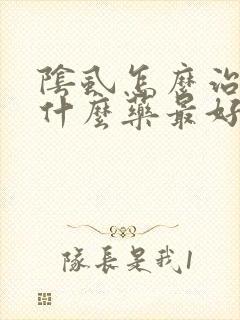 陰虱怎麼治
什麼藥最好
隊長是我1